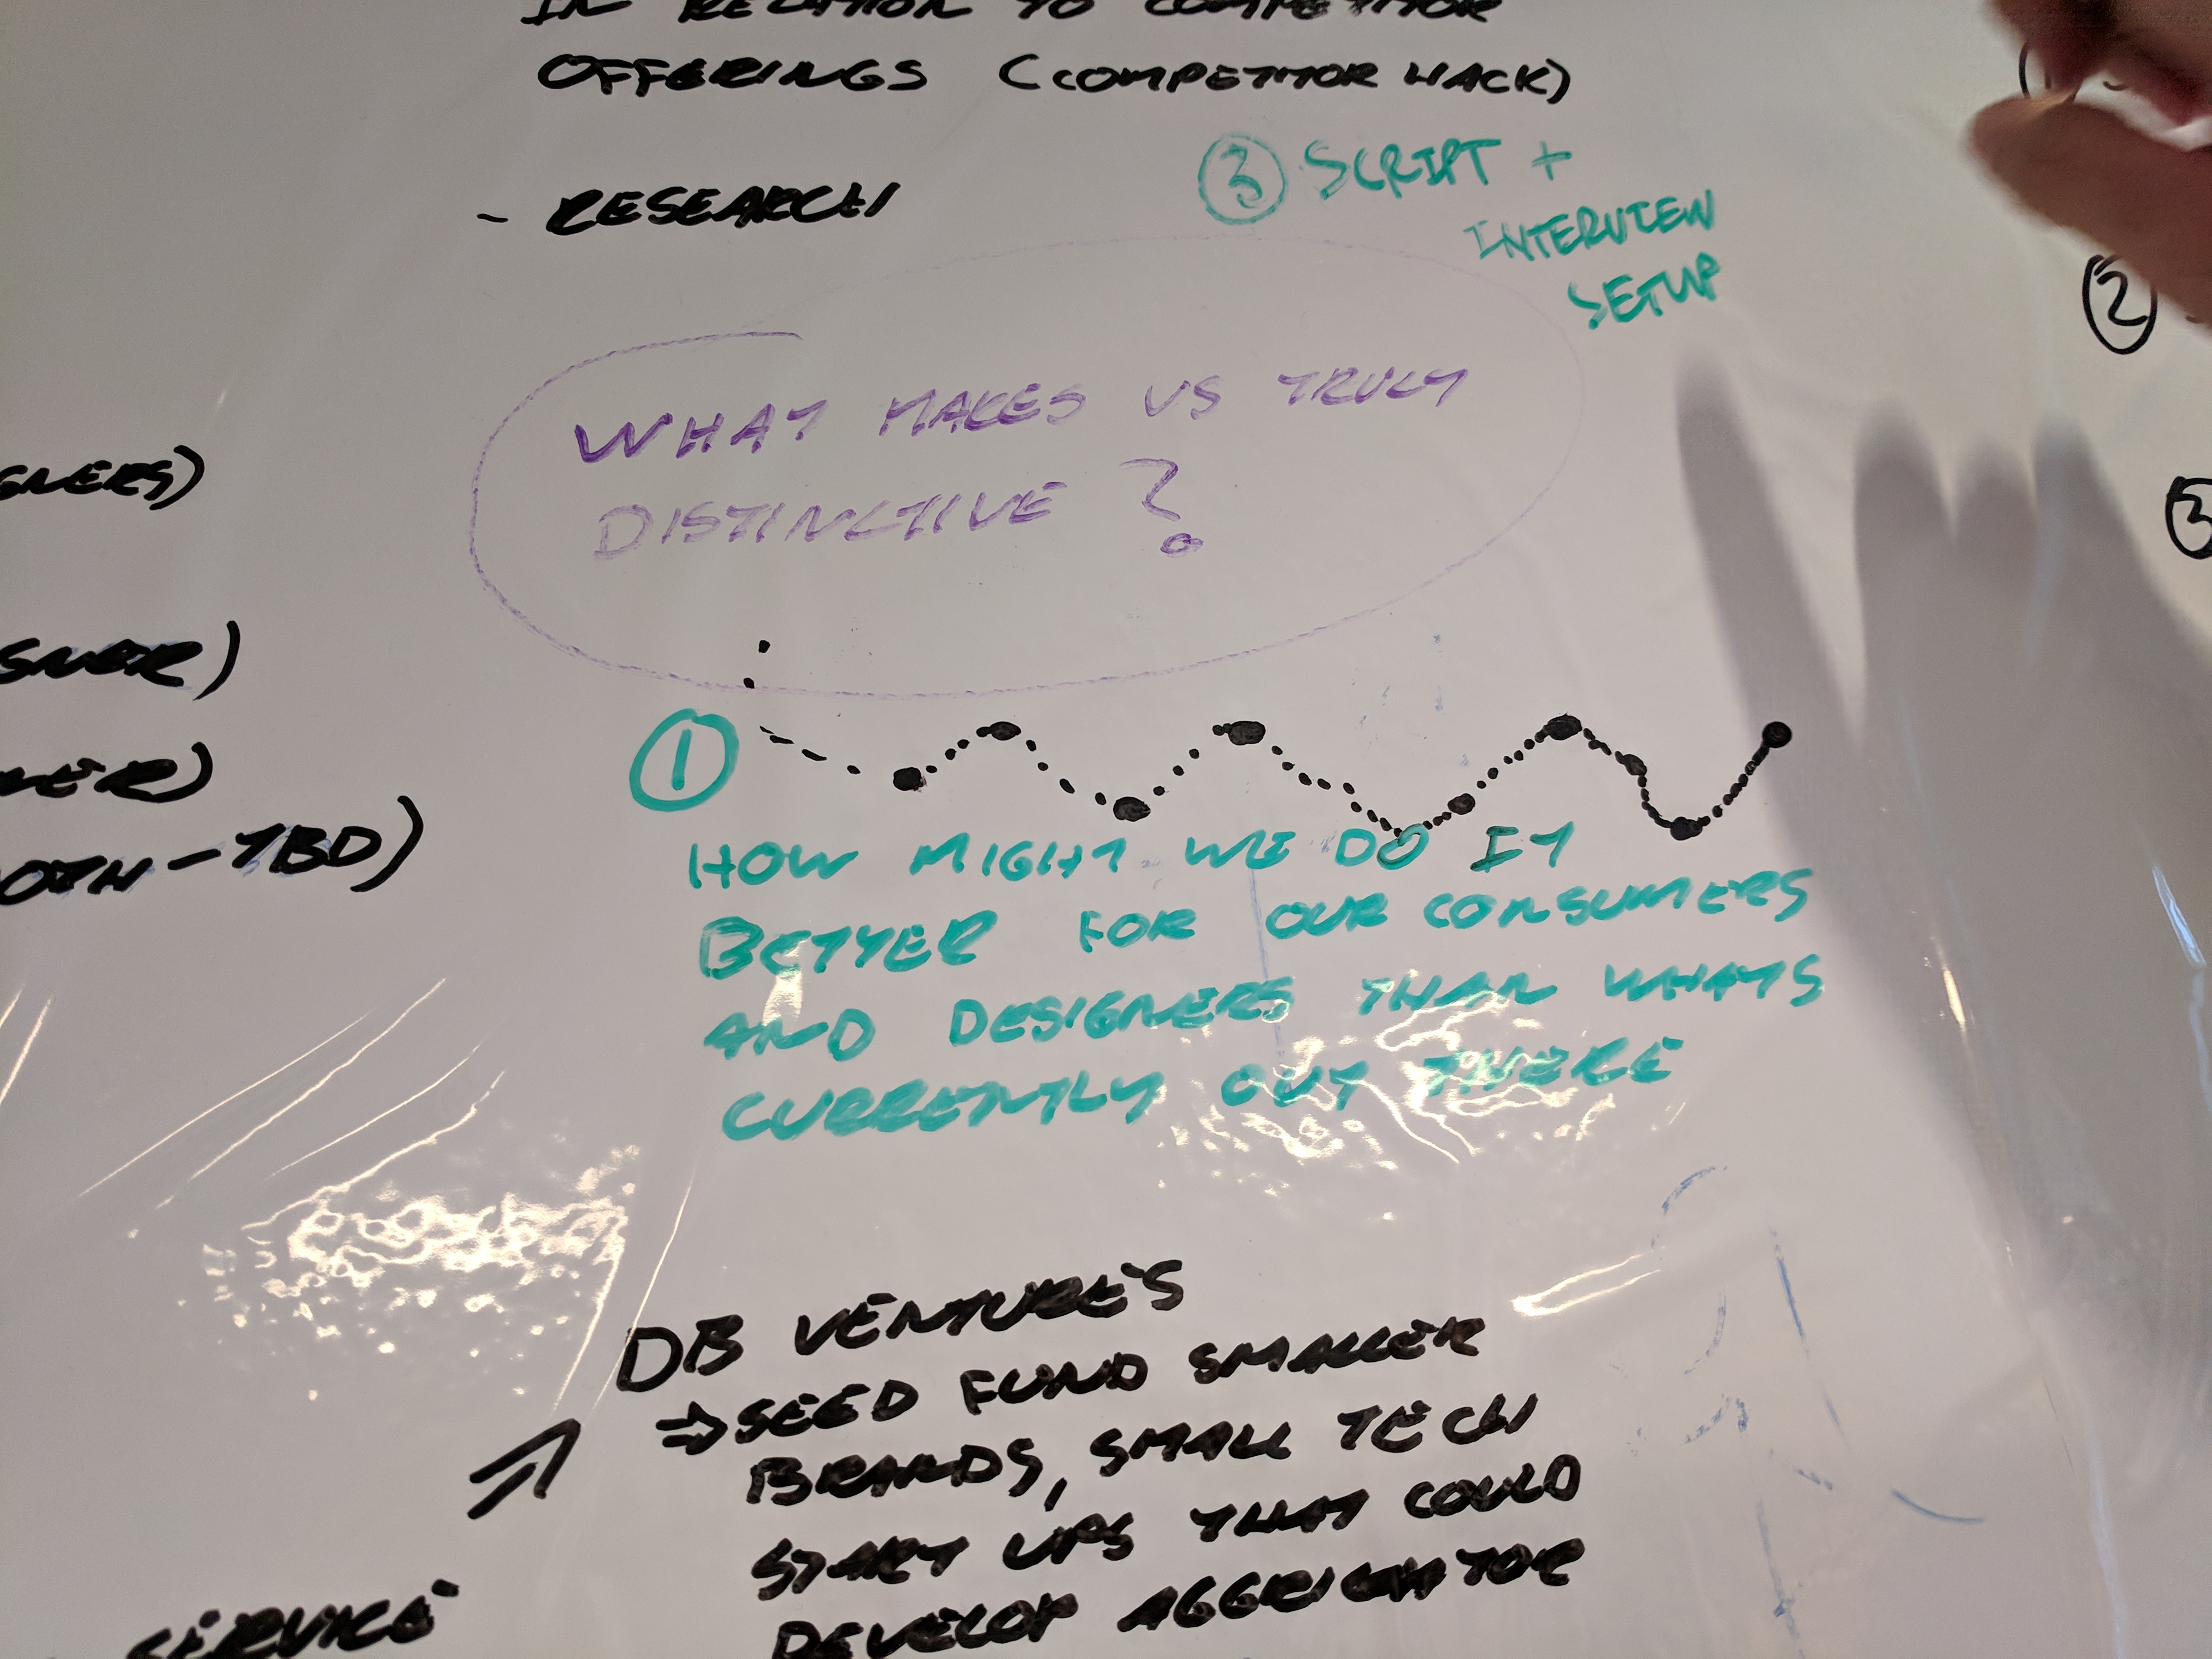 IN RELATION TO COMPETITOR
OFFERINGS (COMPETITOR HACK)
③ SCRIPT +
INTERVIEW
SETUP
- RESEARCH
②
WHAT MAKES US TRULY
DISTINCTIVE ?
①
HOW MIGHT WE DO IT
BETTER FOR OUR CONSUMERS
AND DESIGNERS THAN WHATS
CURRENTLY OUT THERE
- TBD)
DB VENTURES
⇒ SEED FUND SMALLER
BRANDS, SMALL TECH
START UPS THAT COULD
DEVELOP AGGRIGATOR
SERVICE